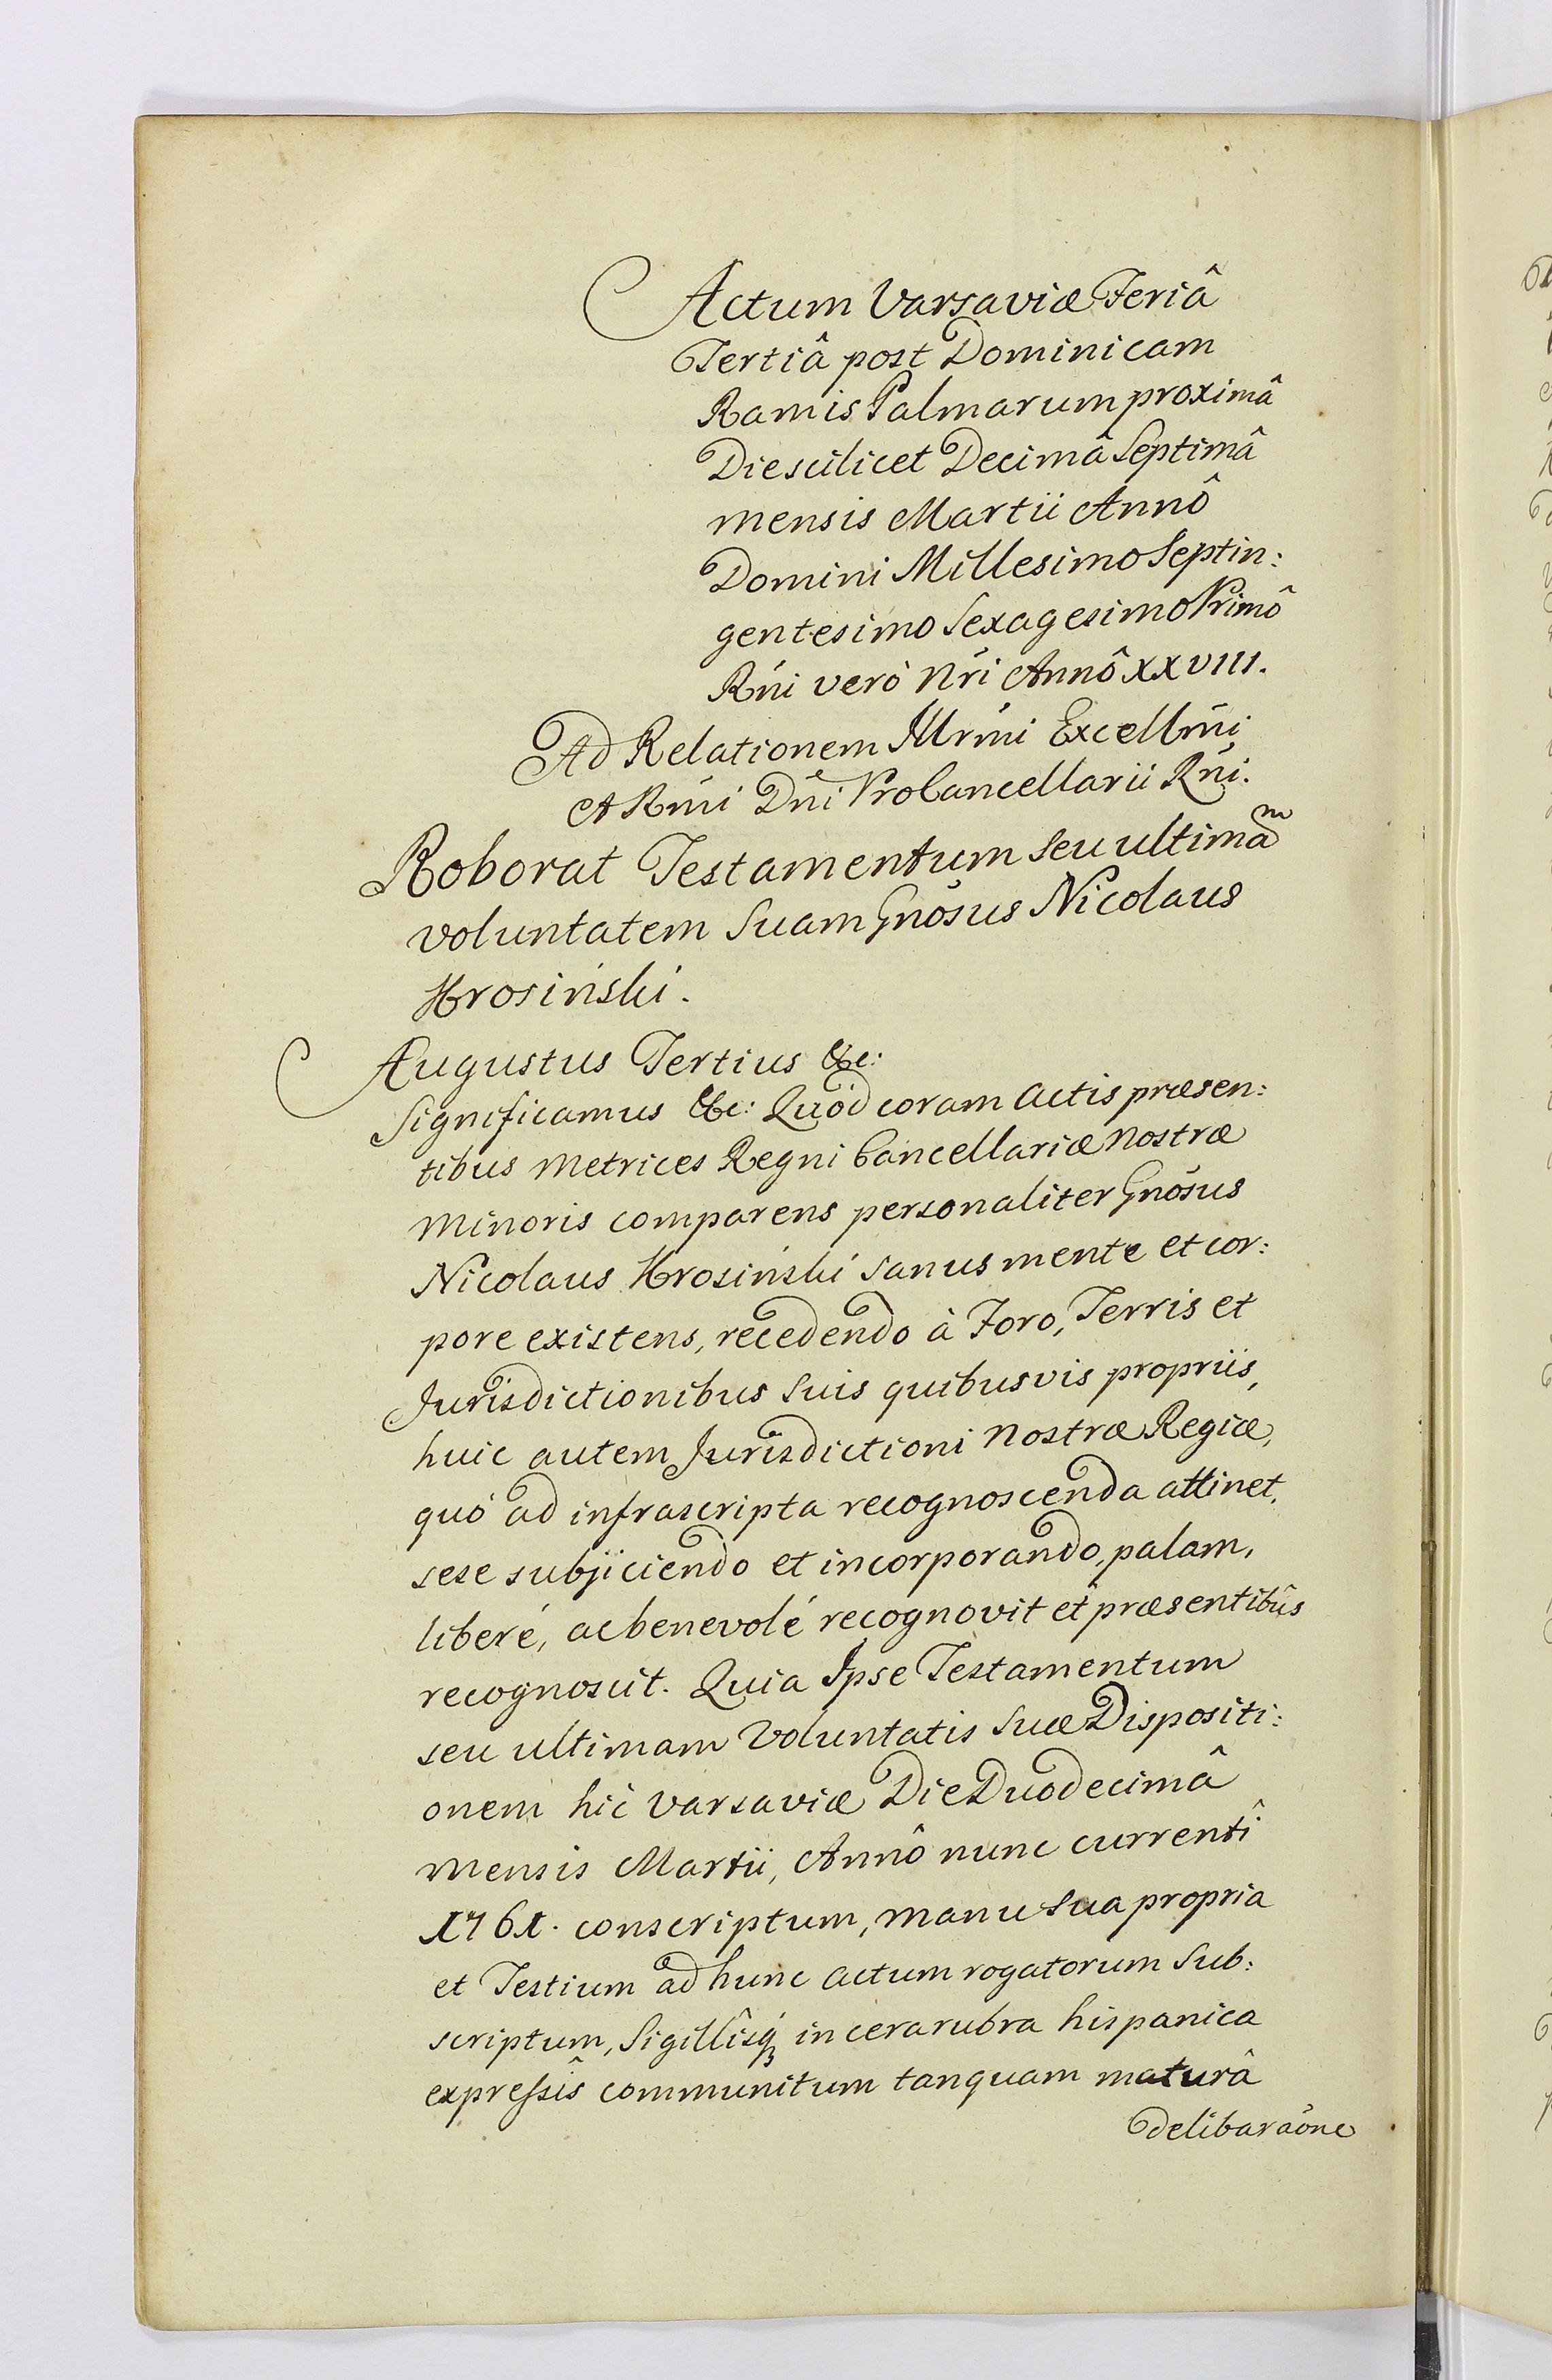 Actum Varsaviæ Feriâ
Tertiâ post Dominicam
Ramis Palmarum proximâ
Die scilicet Decimâ Septimâ
mensis Martii Annô
Domini Millesimo Septin:
gentesimo Sexagesimo Primô
Rńi verò Nŕi Annô XXVIII.
Ad Relationem Illrm̃i Excellm̃i
et Rm̃i Dńi ProCancellarii Rńi.
Roborat Testamentum seu ultimaᵐ
voluntatem Suam Gnõsus Nicolaus
Hrosiński.
Augustus Tertius &c:
Significamus &c: Quód coram Actis præsen:
tibus Metrices Regni Cancellariæ Nostræ
Minoris comparens personaliter Gnõsus
Nicolaus Hrosiński sanus mente et cor:
pore existens, recedendo à Foro, Terris et
Jurisdictionibus Suis quibusvis propriis,
huic autem Jurisdictioni Nostræ Regiæ,
quó ad infrascripta recognoscenda attinet,
sese subjiciendo et incorporando, palam,
liberé, ac benevolé recognovit et præsentibûs
recognoscit. Quia Ipse Testamentum
seu ultimam Voluntatis Suæ Dispositi:
onem híc Varsaviæ Die Duodecimâ
Mensis Martii, Annô nunc currentî
1761. conscriptum, Manu Sua propria
et Testium ad hunc Actum rogatorum Sub:
scriptum, Sigillîsq́ꝫ in cera rubra hispanica
expressîs communitum tanquam maturâ
delibaraõne